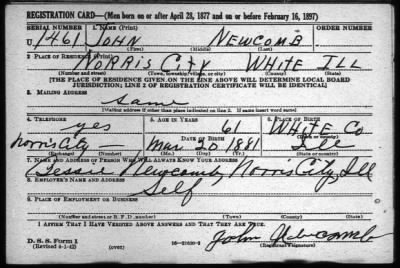 REGISTRATION CARD—(Men born on or after April 28, 1877 and on or before February 16, 1897)
SERIAL NUMBER 1. NAME (Print) ORDER NUMBER
U 1461 JOHN NEWCOMB
(First) (Middle) (Last)
2. PLACE OF RESIDENCE (Print)
NORRIS CITY WHITE ILL
(Number and street) (Town, township, village, or city) (County) (State)
[THE PLACE OF RESIDENCE GIVEN ON THE LINE ABOVE WILL DETERMINE LOCAL BOARD
JURISDICTION; LINE 2 OF REGISTRATION CERTIFICATE WILL BE IDENTICAL]
3. MAILING ADDRESS
Same
[Mailing address if other than place indicated on line 2. If same insert word same]
4. TELEPHONE 5. AGE IN YEARS 6. PLACE OF BIRTH
yes 61 WHITE CO
DATE OF BIRTH (Town or county)
Norris City Mar 20 1881 Ill
(Exchange) (Number) (Mo.) (Day) (Yr.) (State or country)
7. NAME AND ADDRESS OF PERSON WHO WILL ALWAYS KNOW YOUR ADDRESS
Jessie Newcomb, Norris City, Ill
8. EMPLOYER'S NAME AND ADDRESS
Self
9. PLACE OF EMPLOYMENT OR BUSINESS
(Number and street or R. F. D. number) (Town) (County) (State)
I AFFIRM THAT I HAVE VERIFIED ABOVE ANSWERS AND THAT THEY ARE TRUE.
D. S. S. Form 1
(Revised 4-1-42) (over) 16-21630-2
John Newcomb
(Registrant's signature)